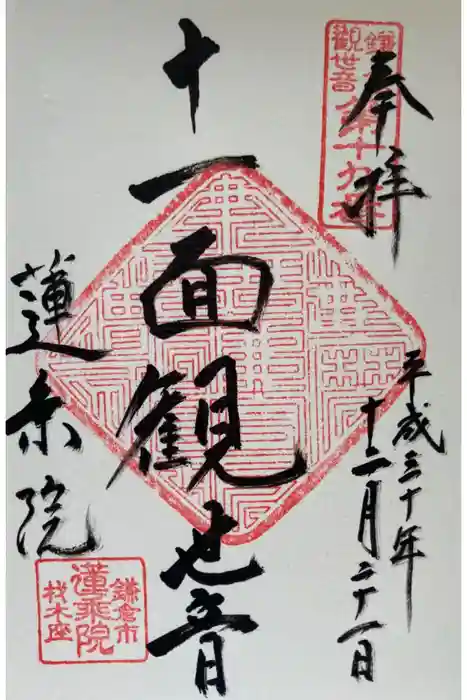 奉拝
鎌
觀世音第十九番
平成三十年
十二月二十一日
十一面観世音
蓮乗院
鎌倉市
蓮乗院
材木座